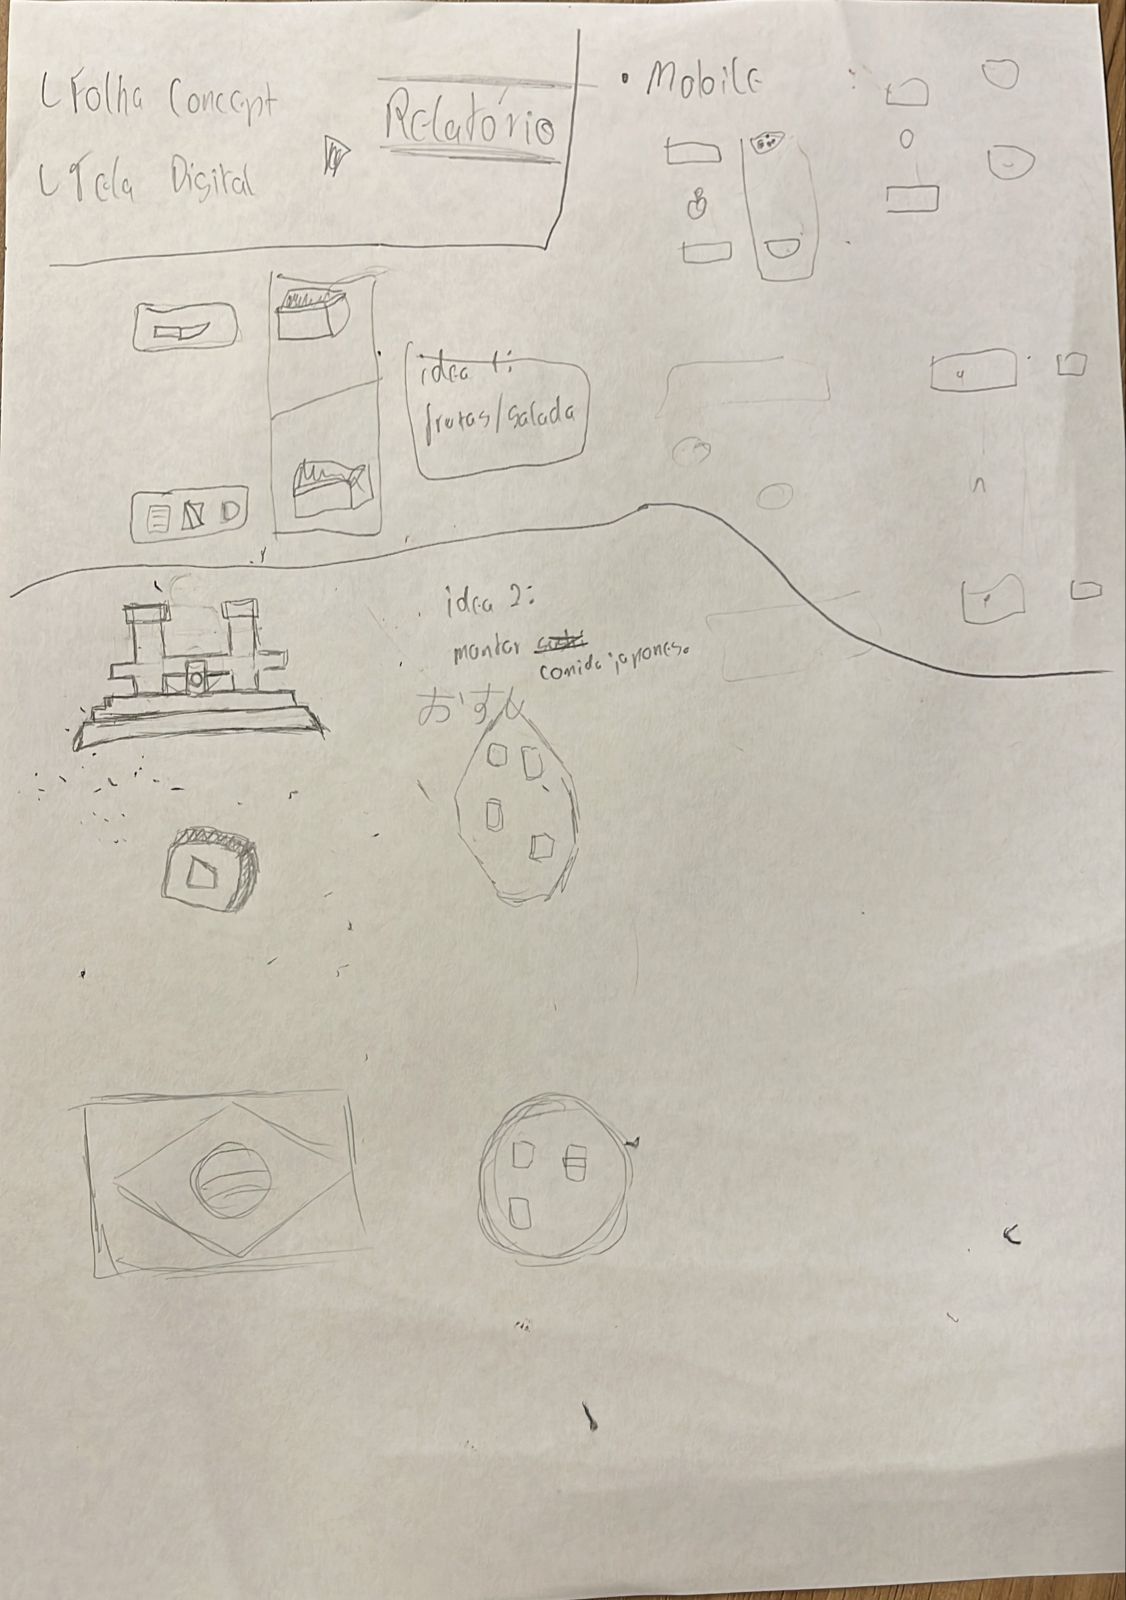 Folha Concept
Tela Digital
Relatório
• Mobile
idea 1:
frutas/salada
idea 2:
montar
comida japones.
おすし